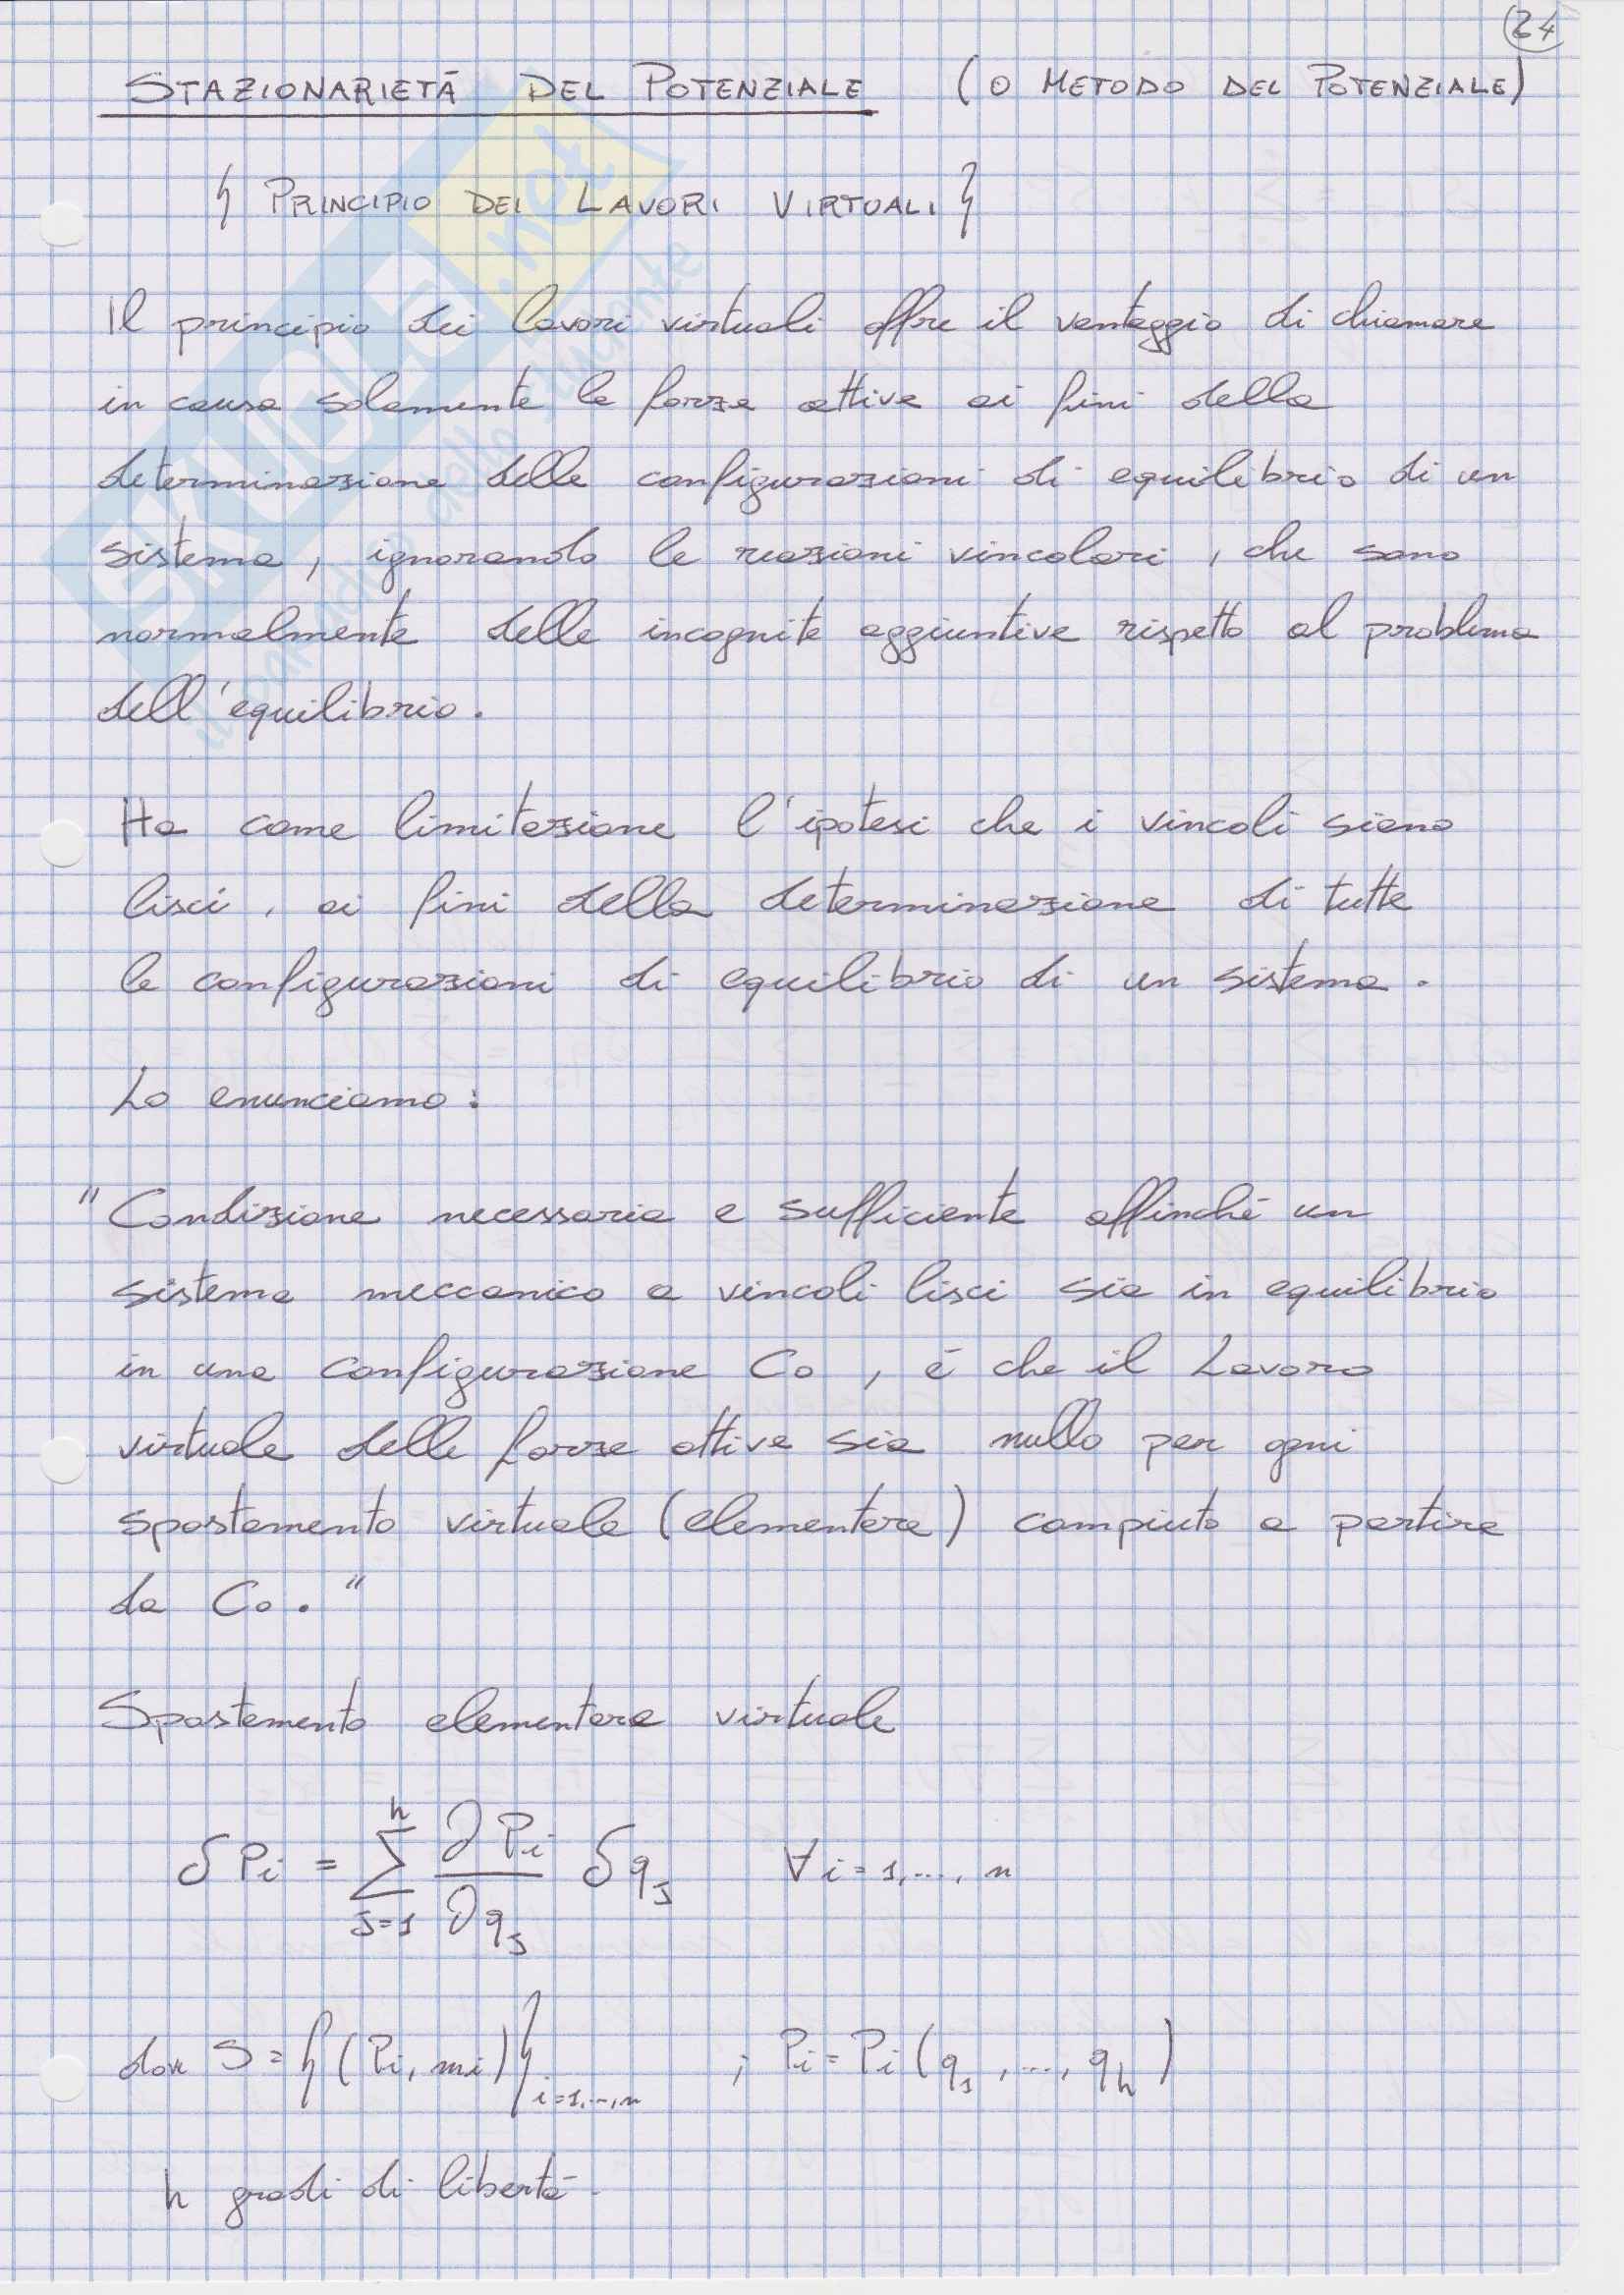 24
STAZIONARIETÀ DEL POTENZIALE (O METODO DEL POTENZIALE)
{ PRINCIPIO DEI LAVORI VIRTUALI }
Il principio dei lavori virtuali offre il vantaggio di chiamare
in causa solamente le forze attive ai fini della
determinazione delle configurazioni di equilibrio di un
sistema, ignorando le reazioni vincolari, che sono
normalmente delle incognite aggiuntive rispetto al problema
dell'equilibrio.
Ha come limitazione l'ipotesi che i vincoli siano
lisci, ai fini della determinazione di tutte
le configurazioni di equilibrio di un sistema.
Lo enunciamo:
"Condizione necessaria e sufficiente affinché un
sistema meccanico a vincoli lisci sia in equilibrio
in una configurazione C₀, è che il Lavoro
virtuale delle forze attive sia nullo per ogni
spostamento virtuale (elementare) compiuto a partire
da C₀."
Spostamento elementare virtuale
δPi = ∑_{j=1}^{h} ∂Pi/∂qj δqj ∀i=1,...,n
dove S={(Pi, mi)}i=1,...,n ; Pi=Pi(q1,...,qh)
h gradi di libertà.
SKUOLA.net
il paradiso dello studente